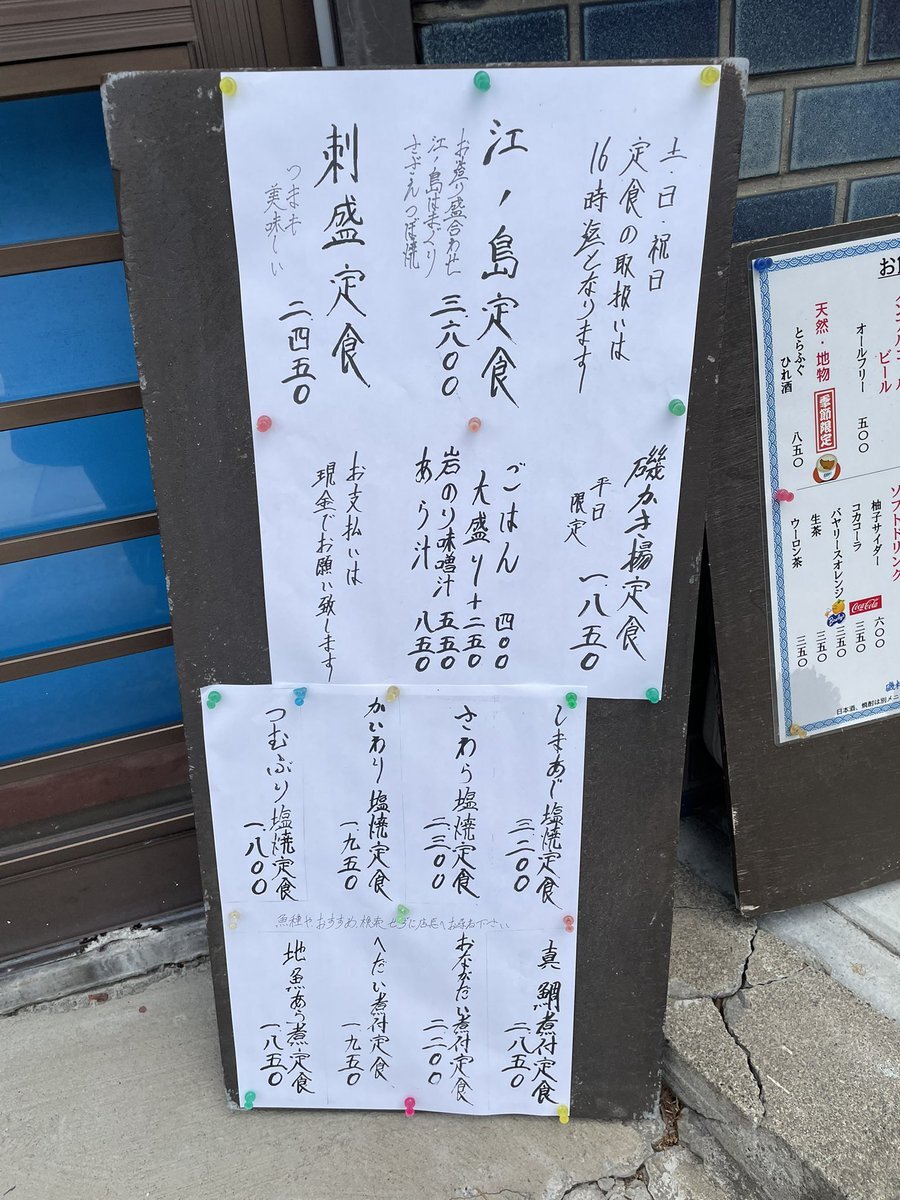 土・日・祝日
定食の取扱いは
16時迄となります
江ノ島定食
お造り盛合わせ
江ノ島はまぐり
さざえつぼ焼
三.六〇〇
刺盛定食
つまも
美味しい
二.四五〇
磯かき揚定食
平日
限定
一.八五〇
ごはん 四〇〇
大盛り+二五〇
岩のり味噌汁 五五〇
あら汁 八五〇
お支払いは
現金でお願い致します
しまあじ塩焼定食
三.二〇〇
さわら塩焼定食
二.三〇〇
かいわり塩焼定食
一.九五〇
つむぶり塩焼定食
一.八〇〇
魚種や、おすすめ、検索せずに店員へお尋ね下さい
真鯛煮付定食
二.八五〇
おながだい煮付定食
二.二〇〇
へだい煮付定食
一.九五〇
地魚あら煮定食
一.八五〇
ビール
オールフリー 五〇〇
天然・地物
季節限定
とらふぐ
ひれ酒 八五〇
ソフトドリンク
柚子サイダー 六〇〇
コカコーラ 三五〇
Coca-Cola
バヤリースオレンジ 三五〇
生茶 三五〇
ウーロン茶 三五〇
日本酒、焼酎は別メニ